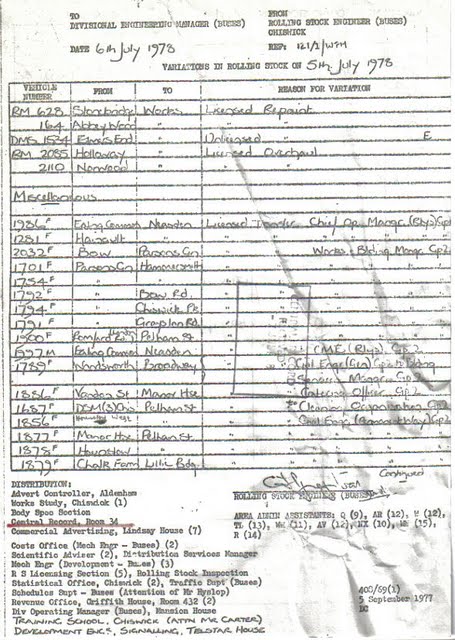 TO FROM
DIVISIONAL ENGINEERING MANAGER (BUSES) ROLLING STOCK ENGINEER (BUSES)
CHISWICK
DATE 6th July 1978 REF: 121/2/WPM
VARIATIONS IN ROLLING STOCK ON 5th July 1978
VEHICLE NUMBER FROM TO REASON FOR VARIATION
RM 628 Stonebridge Works Licensed Repaint
164 Abbey Wood " "
DMS 1534 Elmers End " Unlicensed " E
RM 2085 Holloway " Licensed Overhaul
2110 Norwood " " "
Miscellaneous
1986F Ealing Common Neasden Licensed Transfer Chief Op. Mangr (Rlys) Gp2
1281F Hainault " " "
2032F Bow Parsons Gn " " Works & Bldng Mangr Gp2
1701F Parsons Gn Hammersmith " "
1754F " " " "
1792F " Bow Rd. " "
1794F " Chiswick Pk "
1791F " Grays Inn Rd. "
1900F Romford Rd Pelham St "
1597M Ealing Common Neasden " CME (Rlys) Gp 2
1789F Wandsworth Broadway " Civil Engr (Gen)
1886F Manor Hse " Catering Officer Gp 2
1687F Pelham St "
1856F
1877F Manor Hse Pelham St " "
1878F Hounslow " " "
1879F Chalk Farm Lillie Bdg " "
Continued
DISTRIBUTION:
Advert Controller, Aldenham ROLLING STOCK ENGINEER (BUSES)
Works Study, Chiswick (1)
Body Spec Section
Central Record, Room 34
AREA ADMIN ASSISTANTS: Q (9), AR (12), W (12),
TL (13), WW (11), AV (12), NX (10), MH (15),
R (14)
Commercial Advertising, Lindsay House (7)
Costs Office (Mech Engr - Buses) (2)
Scientific Adviser (2), Distribution Services Manager
Mech Engr (Development - Buses) (3)
R S Licensing Section (5), Rolling Stock Inspection
Statistical Office, Chiswick (2), Traffic Supt (Buses)
Schedules Supt - Buses (Attention of Mr Hyslop)
Revenue Office, Griffith House, Room 432 (2)
Div Operating Manager (Buses), Mansion House
TRAINING SCHOOL, CHISWICK (ATTN MR CARTER)
DEVELOPMENT ENG'S, SIGNALLING, TELSTAR HOUSE
400/69(1)
5 September 1977
DC